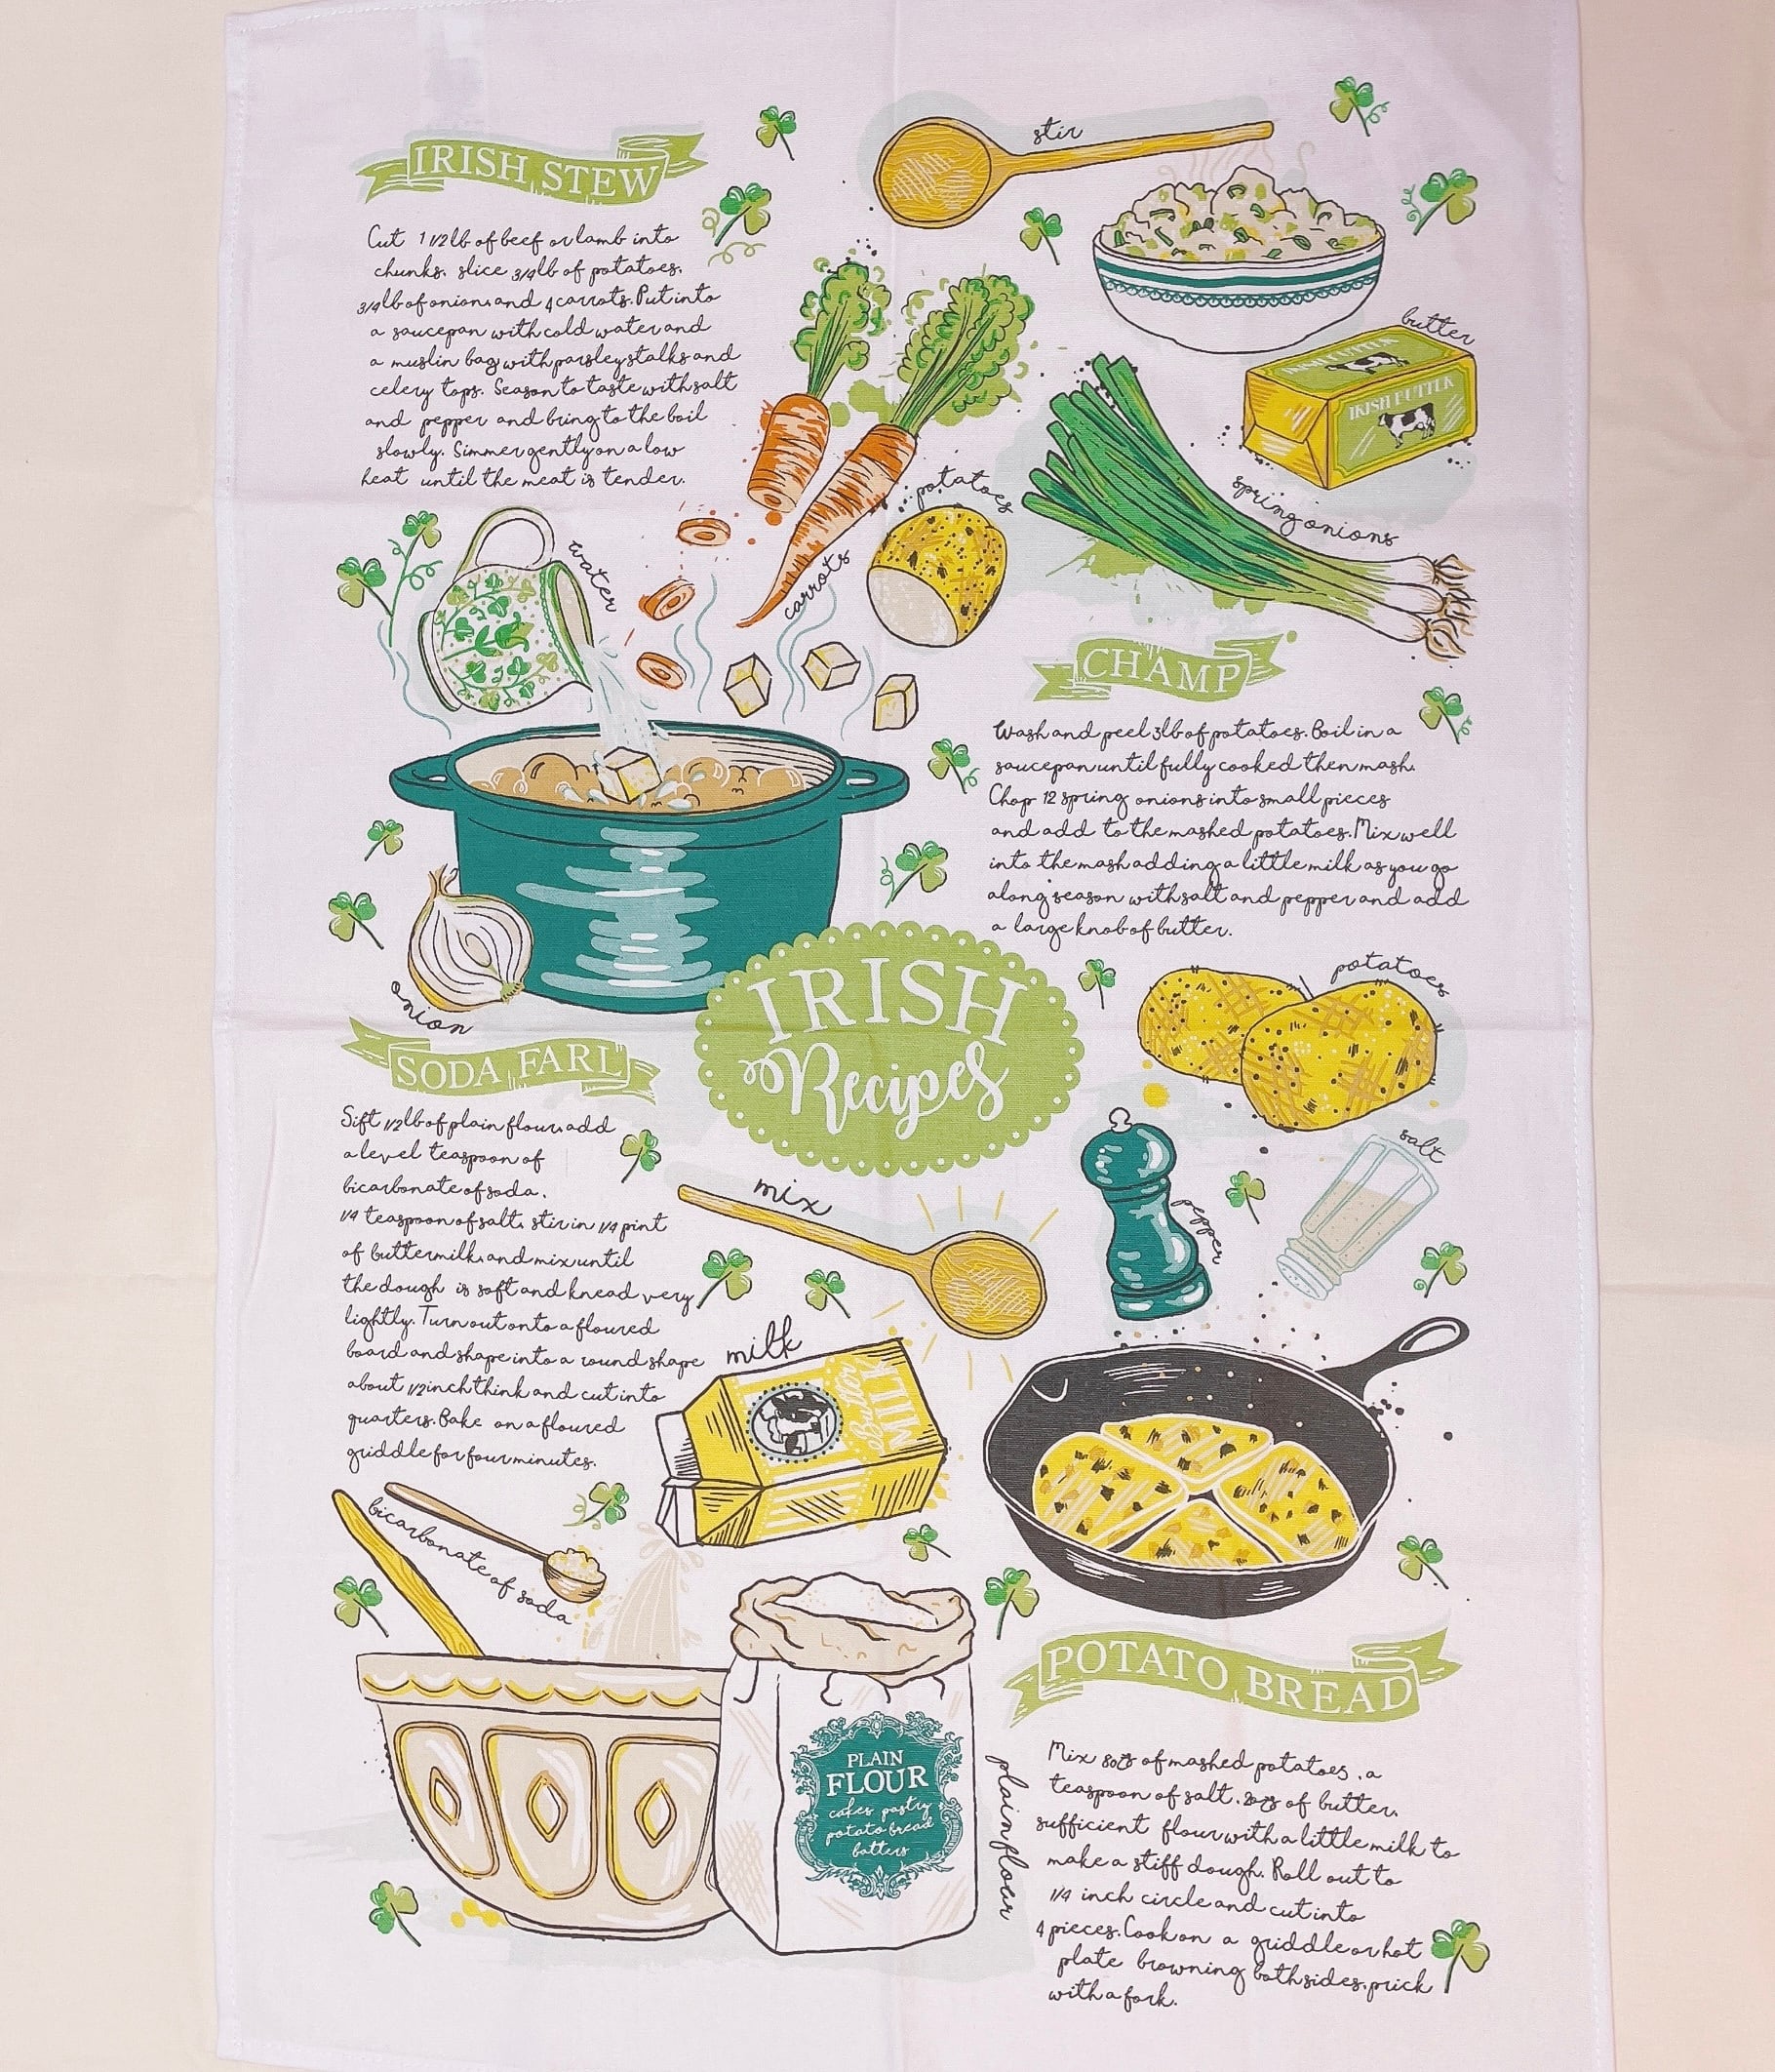 IRISH STEW
Cut 1 1/2lb of beef or lamb into
chunks, slice 3/4lb of potatoes,
3/4lb of onions and 4 carrots. Put into
a saucepan with cold water and
a muslin bag with parsley stalks and
celery tops. Season to taste with salt
and pepper and bring to the boil
slowly. Simmer gently on a low
heat until the meat is tender.
stir
butter
IRISH BUTTER
IRISH BUTTER
spring onions
potatoes
carrots
water
onion
CHAMP
Wash and peel 3lb of potatoes. Boil in a
saucepan until fully cooked then mash.
Chop 12 spring onions into small pieces
and add to the mashed potatoes. Mix well
into the mash adding a little milk as you go
along season with salt and pepper and add
a large knob of butter.
IRISH
Recipes
potatoes
salt
pepper
SODA FARL
Sift 1/2lb of plain flour, add
a level teaspoon of
bicarbonate of soda,
1/4 teaspoon of salt, stir in 1/4 pint
of buttermilk, and mix until
the dough is soft and knead very
lightly. Turn out onto a floured
board and shape into a round shape
about 1/2 inch think and cut into
quarters. Bake on a floured
griddle for four minutes.
mix
milk
Butter
MILK
bicarbonate of soda
PLAIN
FLOUR
cakes pastry
potato bread
batters
plain flour
POTATO BREAD
Mix 8ozs of mashed potatoes, a
teaspoon of salt, 2ozs of butter,
sufficient flour with a little milk to
make a stiff dough. Roll out to
1/4 inch circle and cut into
4 pieces. Cook on a griddle or hot
plate browning both sides, prick
with a fork.